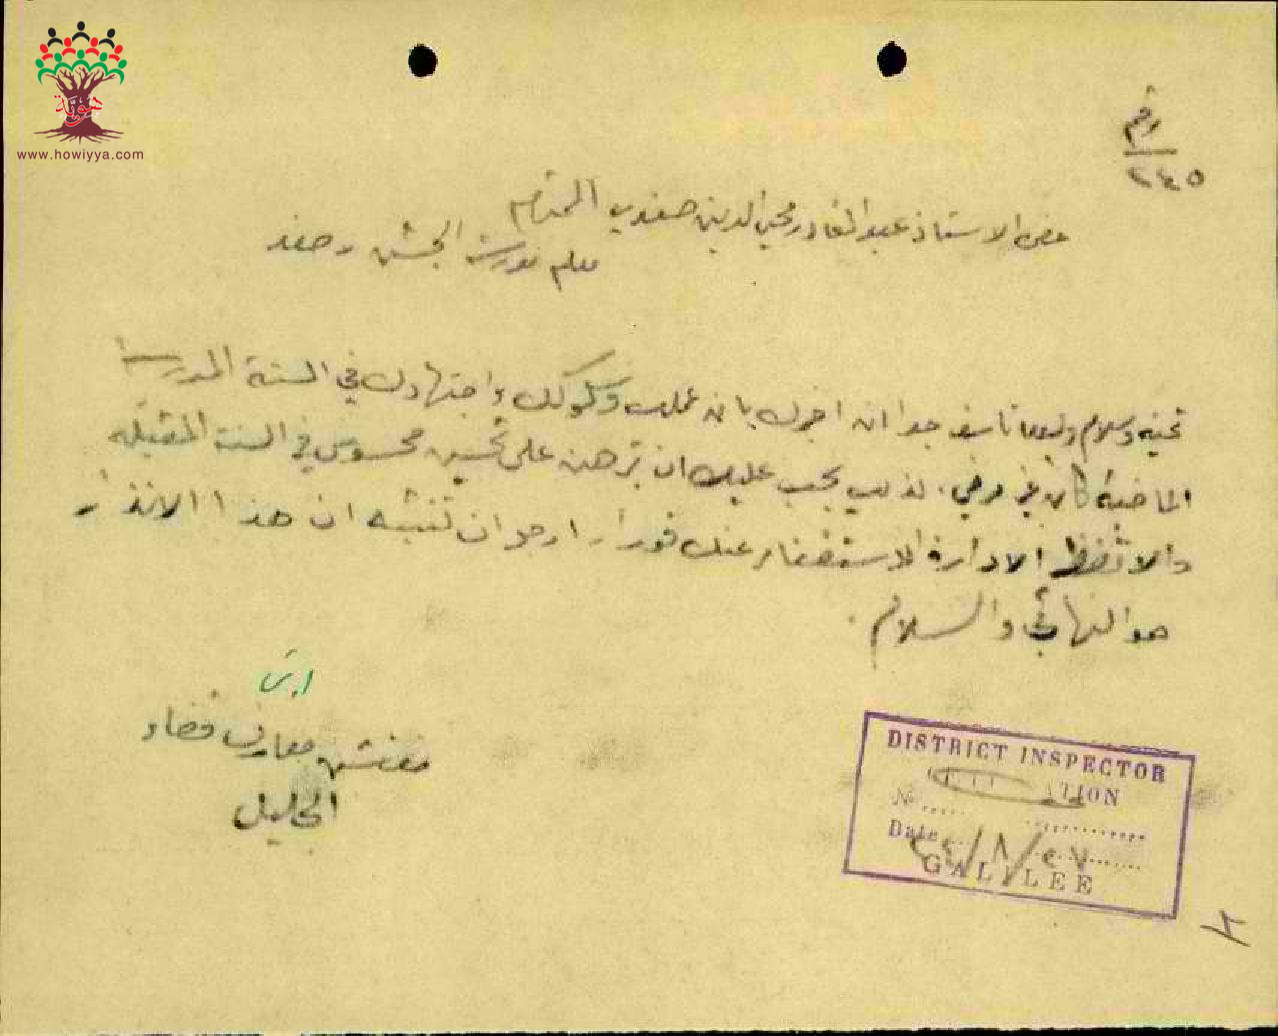 هوية
www.howiyya.com
رقم
٢٤٥
حضرة الاستاذ عبد القادر محيي الدين صفدي المحترم
معلم مدرسة الجش صفد
تحية وسلام وبعد جدا ان اخبرك بان عملك وسلوكك واجتهادك في السنة المدرسية
الماضية كان غير مرضي. لذلك يجب عليك ان تبرهن على تحسين محسوس في السنة المقبلة
والا تضطر الادارة للاستغناء عنك فورا. ارجو ان تنتبه ان هذا الانذار
هو النهائي والسلام.
مفتش معارف قضاء
الجليل
DISTRICT INSPECTOR
Nº
Date
GALILEE
٢